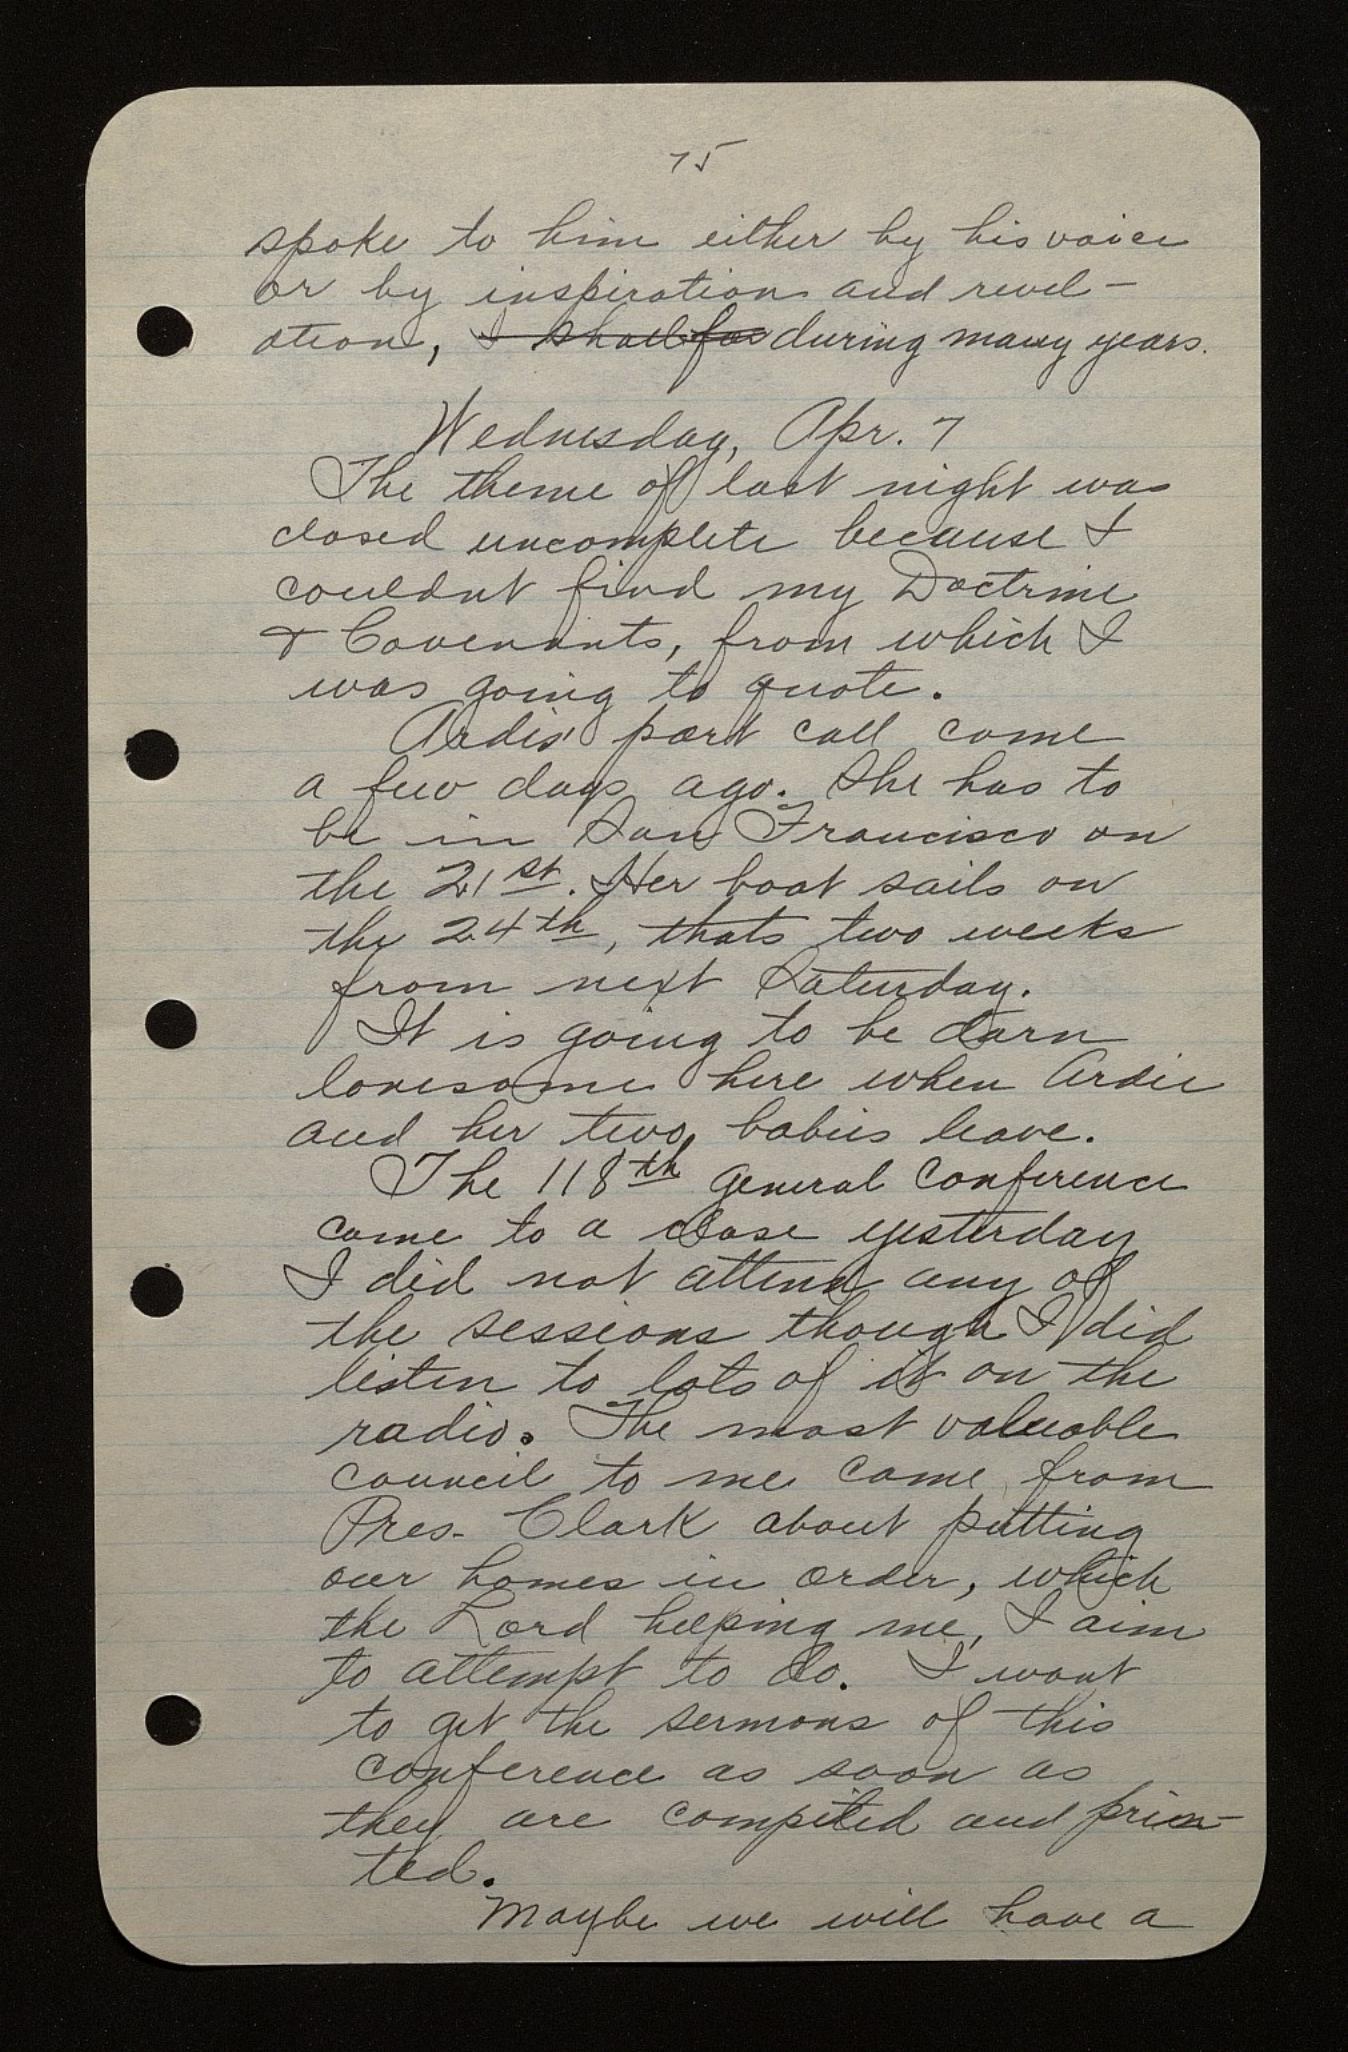 75
spoke to him either by his voice
or by inspiration and revel-
ation, I shall for during many years.
Wednesday, Apr. 7
The theme of last night was
closed uncomplete because I
couldnt find my Doctrine
& Covenants, from which I
was going to quote.
Ardis' port call came
a few days ago. She has to
be in San Francisco on
the 21st. Her boat sails on
the 24th, thats two weeks
from next Saturday.
It is going to be darn
lonesome here when Ardie
and her two babies leave.
The 118th general Conference
came to a close yesterday
I did not attend any of
the sessions though I did
listen to lots of it on the
radio. The most valuable
council to me came from
Pres. Clark about putting
our homes in order, which
the Lord helping me, I aim
to attempt to do. I want
to get the sermons of this
conference as soon as
they are compiled and prin-
ted.
Maybe we will have a